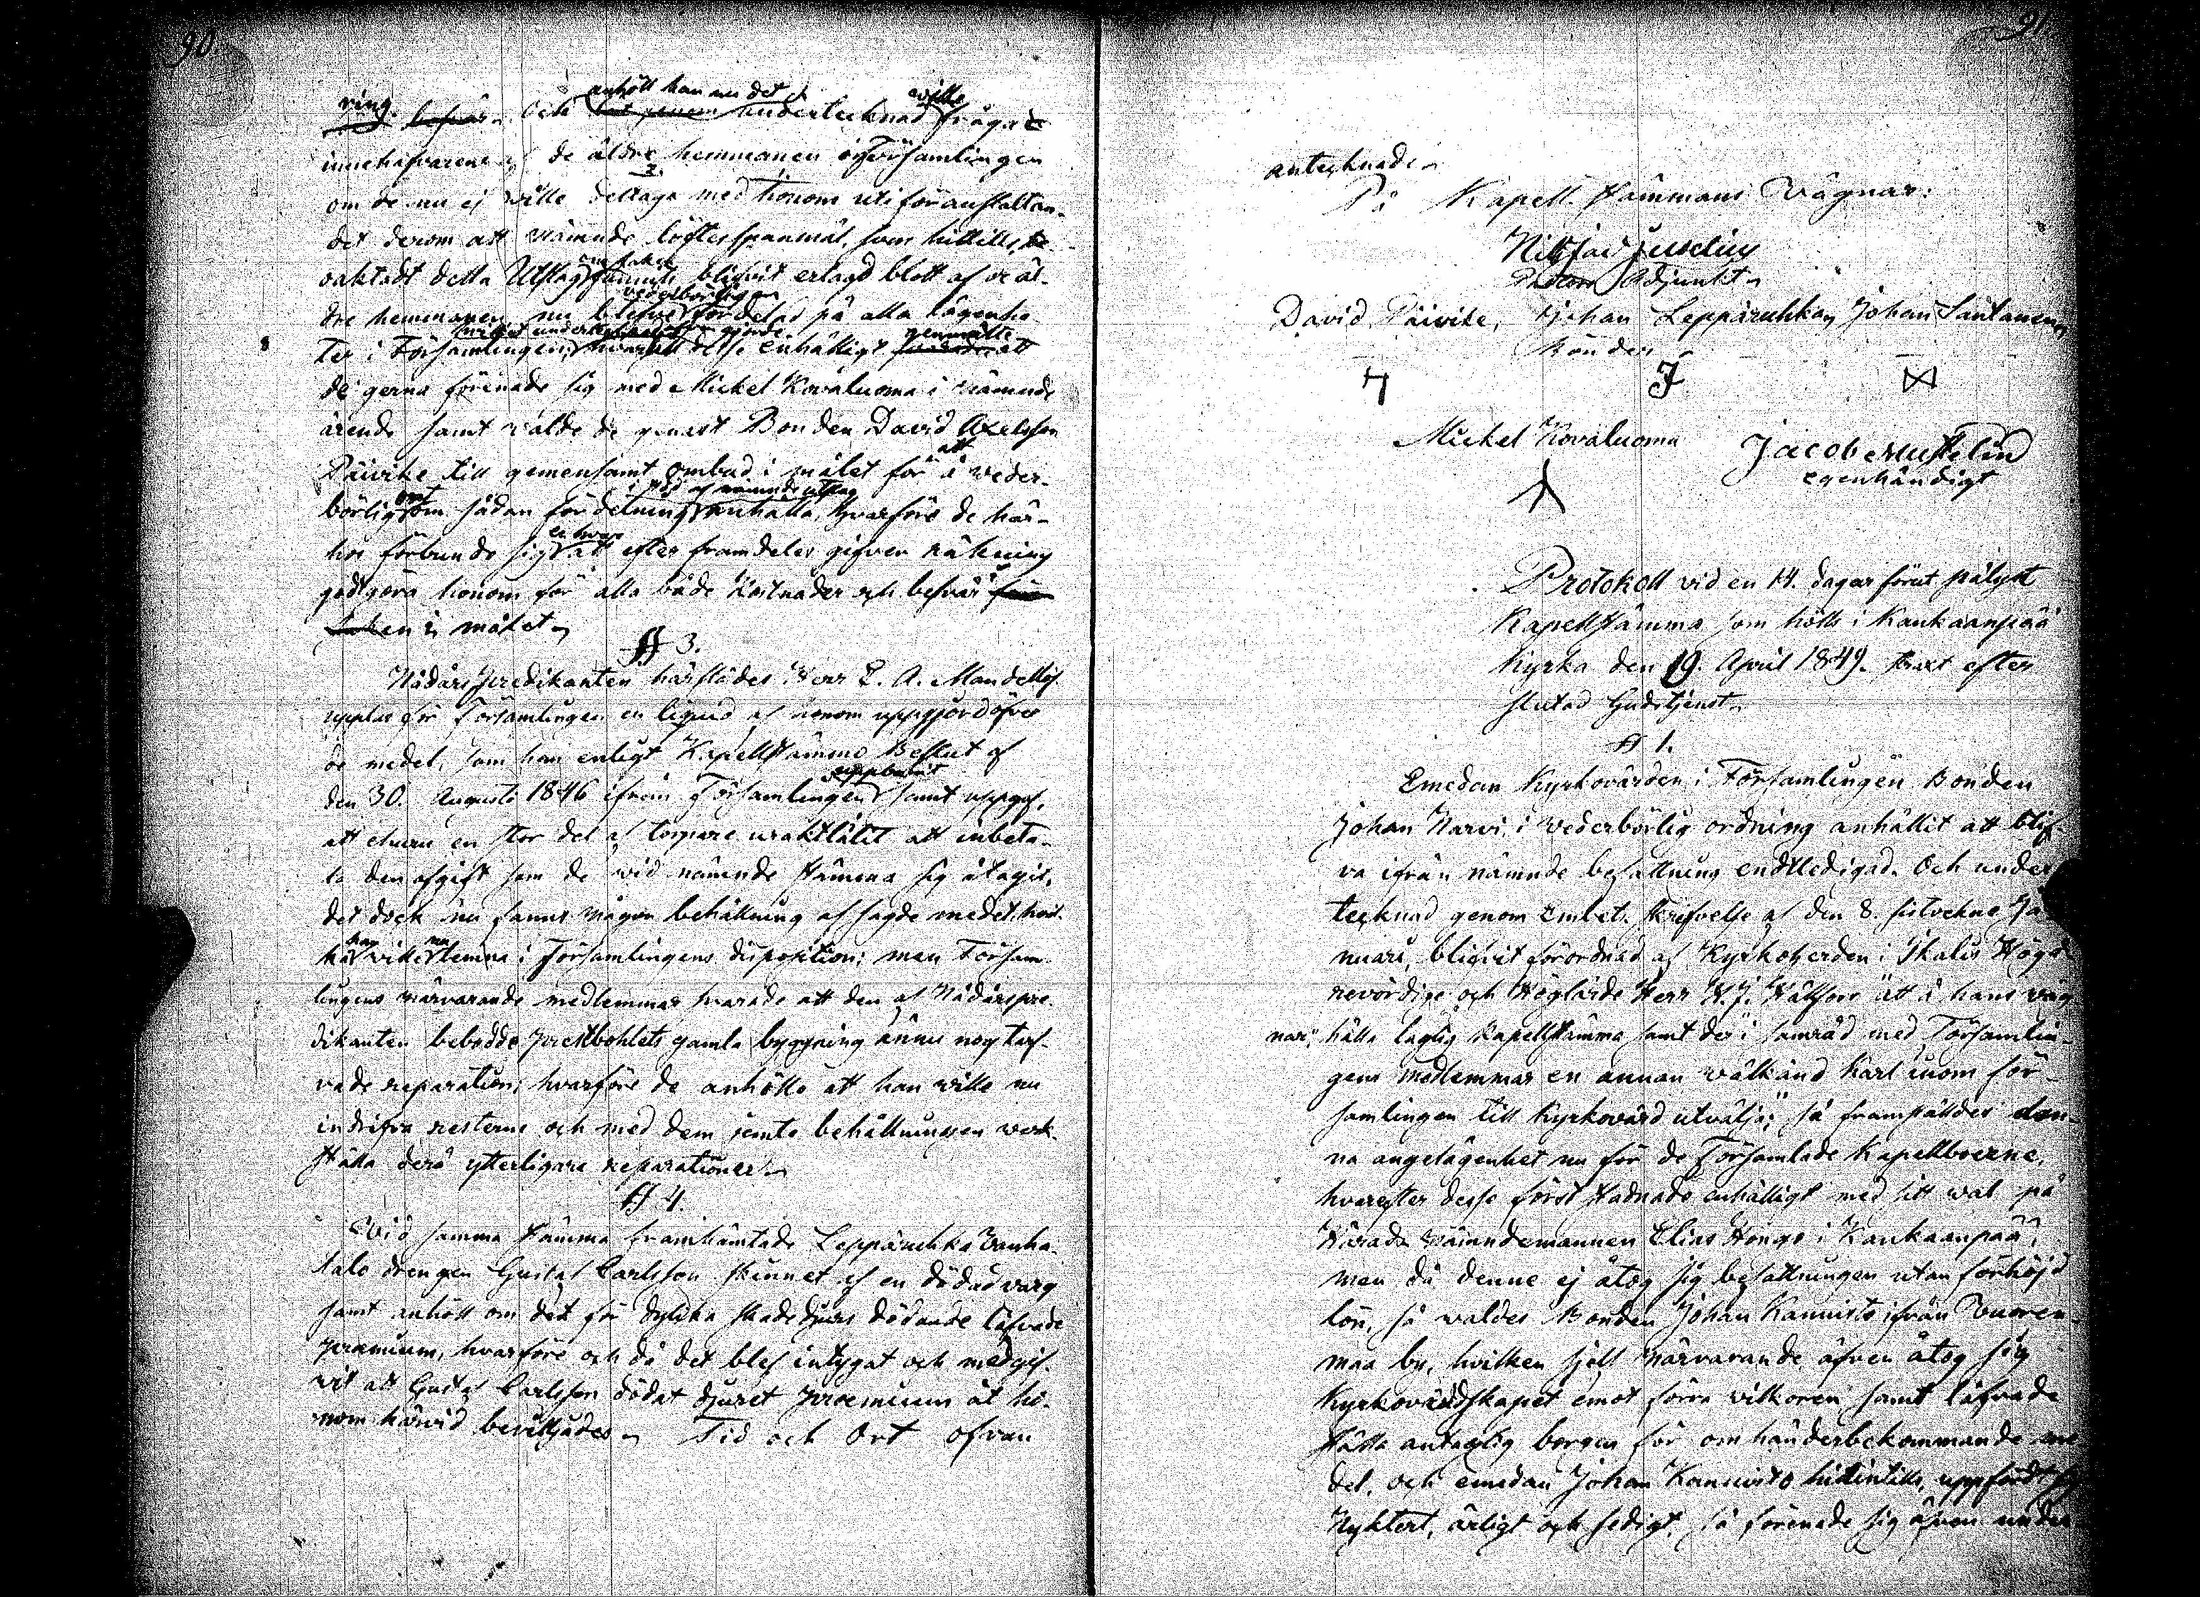 90.
anhöll han nu det wille
ring. besvär. Och undertecknad fråga
innehafvarene af de äldre hemmanen i Församlingen
om de nu ej wille deltaga med honom uti föranstaltan-
det derom att nämnde löftesspanmål, som hittills,
oaktadt detta Utslag funnits blifvit erlagd blott af de äl-
vederbörligen
dre hemmanen nu blefve fördelad på alla lägenhe-
ter i Församlingen; hvarå desse enhälligt genmälte att
de gerna förenade sig med Mickel Kovaluoma i nämnde
ärende samt valde de genast Bonden David Axelsson
Päivike till gemensamt ombud i målet för att å veder-
i stöd af nämnde utslag
börlig ort om sådan fördelning anhålla, hvarföre de här-
hos förbundo sig en hvar att efter framdeles gifven räkning
godtgöra honom för alla både kostnader och besvär
en i målet.
§ 3.
Nådårspredikanten härstädes Herr E. A. Mandellöf
upplas för Församlingen en liquid af honom uppgjord öfver
de medel, som han enligt Kapellstämmo Beslut af
uppburit
den 30. Augusti 1846 ifrån Församlingen samt uppgaf,
att ehuru en stor del af torpare uraktlåtit att inbeta-
la den afgift som de vid nämnde stämma sig åtagit,
det dock nu fanns någon behållning af sagde medel, hvil-
ka han ville nu lemna i Församlingens disposition; men Försam-
lingens närvarande medlemmar svarade att den af Nådårspre-
dikanten bebodde prestbohlets gamla byggning ännu nog tarf-
vade reparation, hvarföre de anhöllo att han wille nu
indrifva resterne och med dem jemte behållningen verk-
ställa derå ytterligare reparationer.
§ 4.
Vid samma stämma framhämtade Leppäruhka Vanha-
talo drengen Gustaf Carlsson skinnet af en dödad varg
samt anhöll om det för dylika skadedjurs dödande läfvade
præmium, hvarföre och då det blef intygat och medgif-
vit att Gustaf Carlsson dödat djuret præmium åt ho-
nom härvid beviljades. Tid och Ort ofvan
91.
antecknade.
På Kapell. Stämmans Vägnar:
Juselius
Pastors Adjunkt.
David Päivike, Johan Leppäruhka, Johan Santanen,
Bönder
Mickel Kovaluoma Jacob Mustelin
egenhändigt
Protokoll vid en 14. dagar förut pålyst
Kapellstämma som hölls i Kankaanpää
Kyrka den 19. April 1849. straxt efter
slutad Gudstjenst.
§ 1.
Emedan Kyrkovärden i Församlingen Bonden
Johan Narvi i vederbörlig ordning anhållit att blif-
va ifrån nämnde befattning endtledigad. Och under-
tecknad genom Embet. skrifvelse af den 8. sistvekne Ja-
nuari, blifvit förordnad af Kyrkoherden i Ikalis Hög-
revördige och Höglärde Herr H. J. Hällfors "att å hans väg-
nar," hålla laglig Kapellstämma samt der "i samråd med Församlin-
gens medlemmar en annan välkänd Karl inom för-
samlingen till Kyrkovärd utvälja;" så framställdes den-
na angelägenhet nu för de Församlade Kapellboerne,
hvarefter desse först stadnade enhälligt med sitt wal på
Härads nämndemannen Elias Hongo i Kankaanpää;
men då denne ej åtog sig befattningen utan förhöjd
lön, så valdes Bonden Johan Kannisto ifrån Vuoren-
maa by, hvilken sjelf närvarande äfven åtog sig
Kyrkovärdskapet emot förra vilkoren samt läfvade
ställa antaglig borgen för om händerbekommande me-
del, och emedan Johan Kannisto hittintills, uppfördt sig
Nyktert, ärligt och sedigt, så förenade sig äfven under-